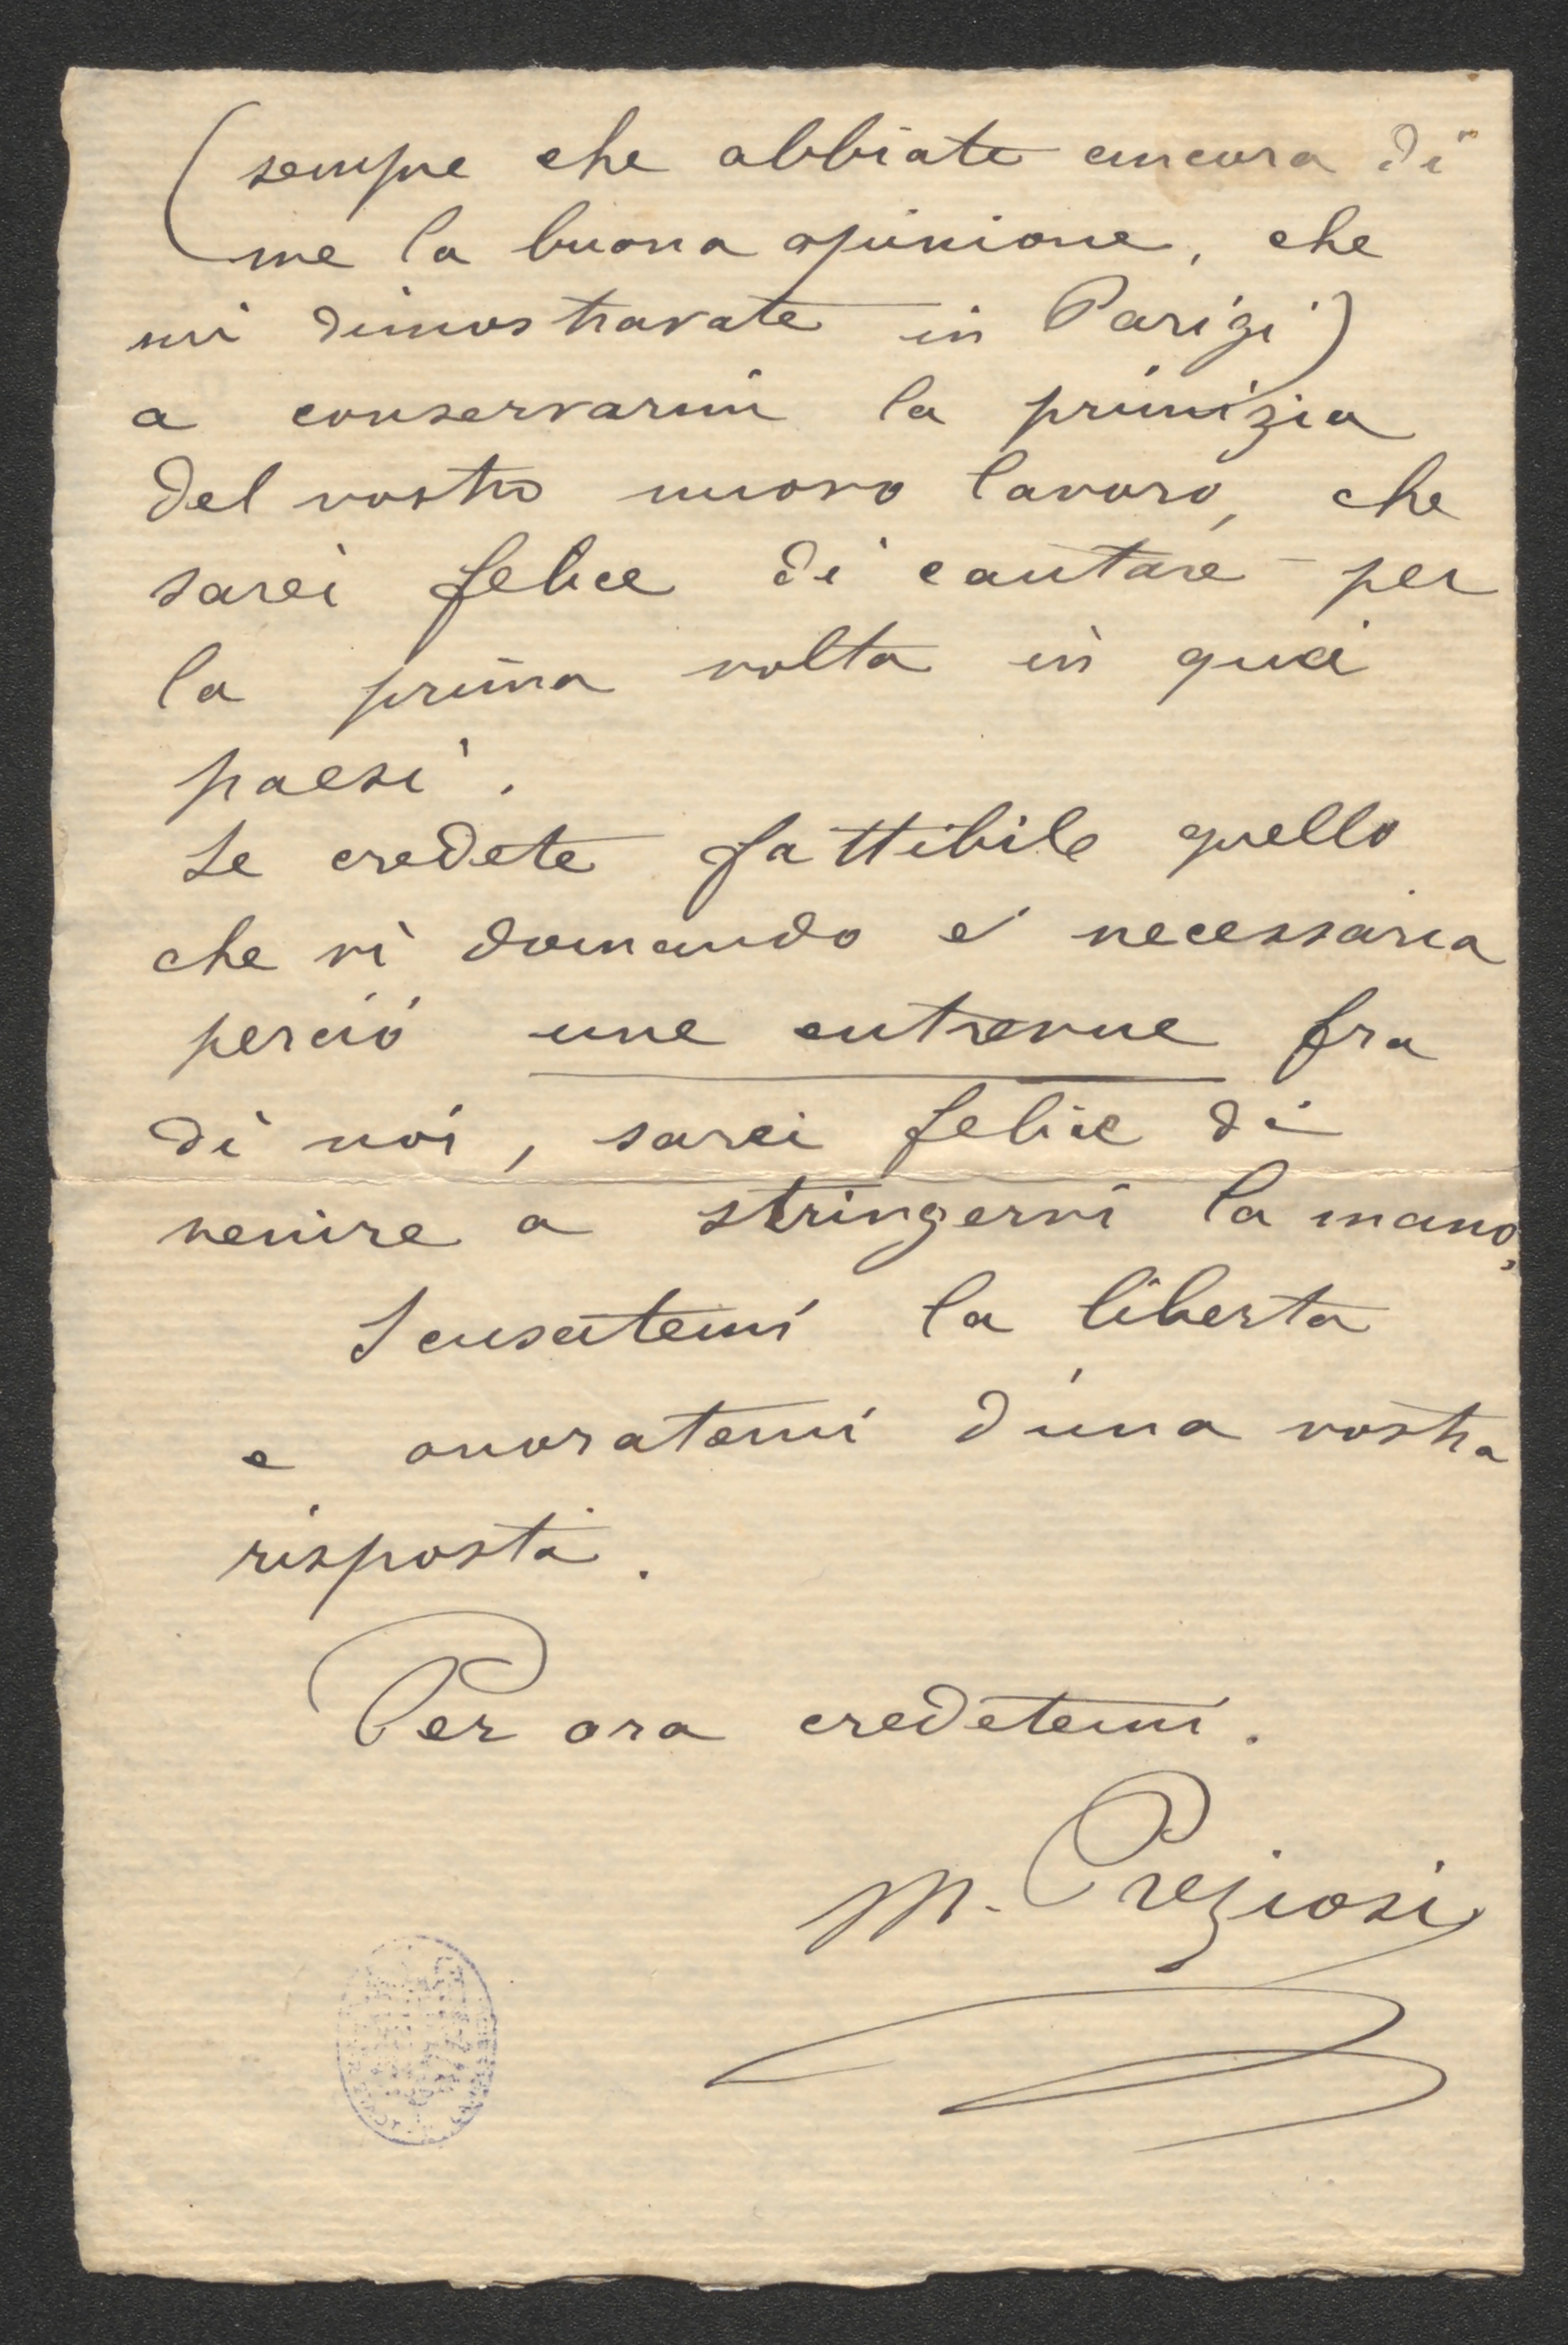 (sempre che abbiate ancora di
me la buona opinione, che
mi dimostravate in Parigi)
a conservarmi la primizia
del vostro nuovo lavoro, che
sarei felice di cantare per
la prima volta in quei
paesi.
Se credete fattibile quello
che vi domando e' necessaria
perció une entrevue fra
di noi, sarei felice di
venire a stringervi la mano,
Scusatemi la liberta
e onoratemi d'una vostra
risposta.
Per ora credetemi.
M. Preziosi